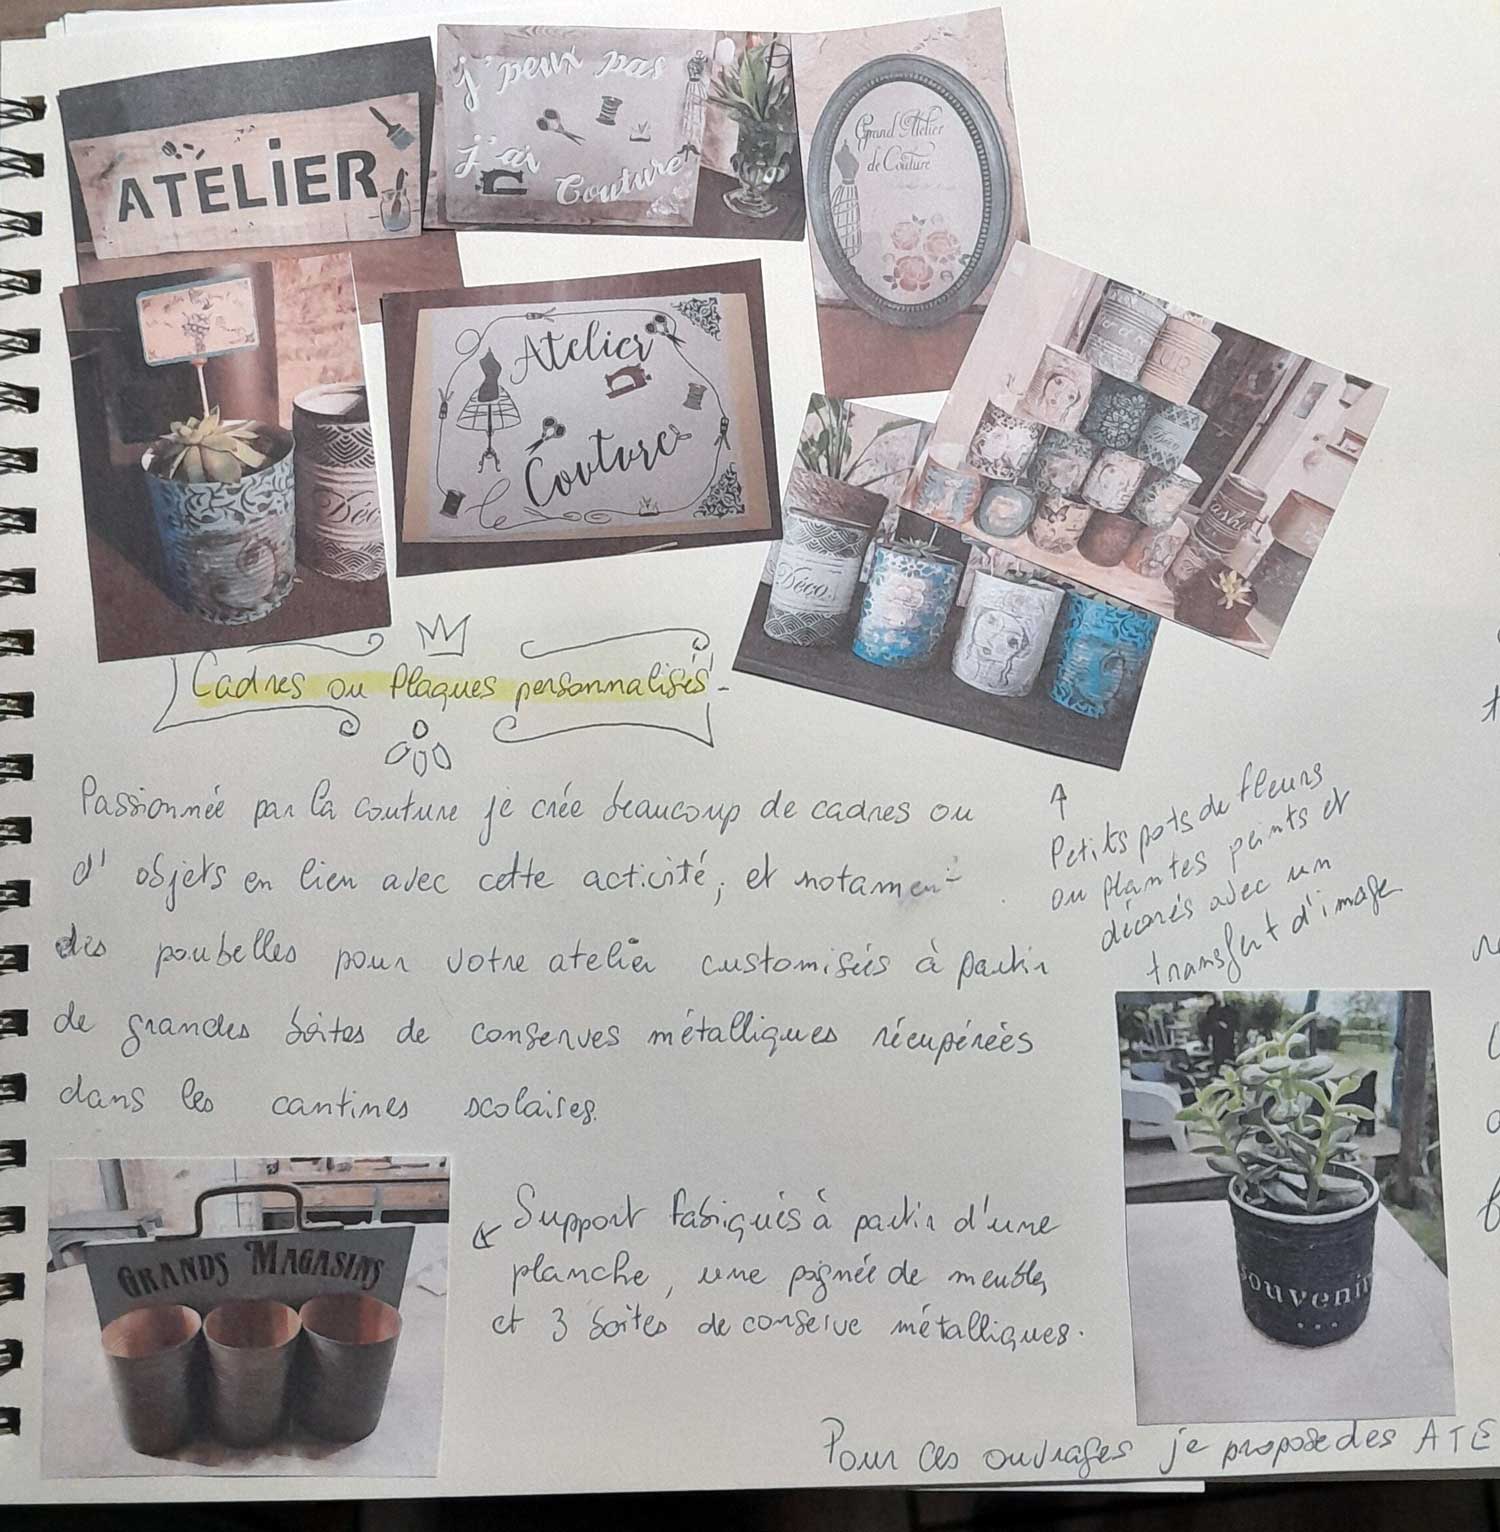 ATELIER
j'peux pas
j'ai
Couture
Grand Atelier
de Couture
Atelier
Couture
Déco
Déco
Cadres ou Plaques personnalisés
Passionnée par la couture je crée beaucoup de cadres ou
d'objets en lien avec cette activité, et notamen-
des poubelles pour votre atelier customisées à partir
de grandes boîtes de conserves métalliques récupérées
dans les cantines scolaires.
↑
Petits pots de fleurs
ou plantes peints et
décorés avec un
transfert d'image
GRANDS MAGASINS
Support fabriqués à partir d'une
planche, une poignée de meuble,
et 3 boîtes de conserve métalliques.
souvenir
...
Pour ces ouvrages je propose des ATE